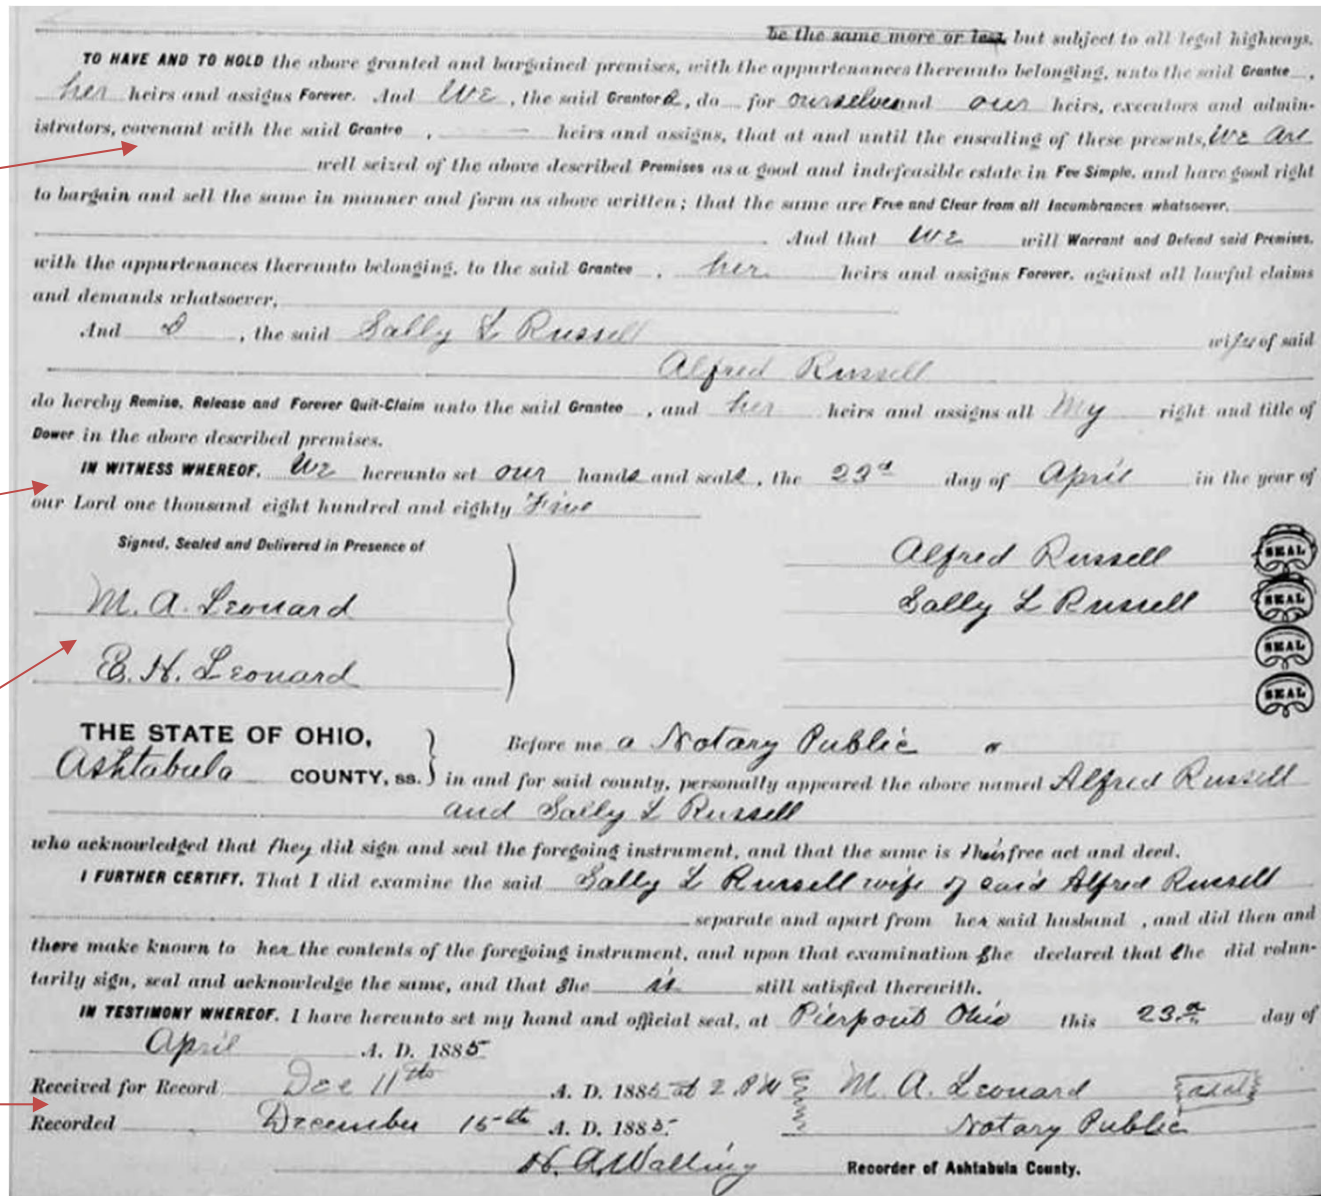 be the same more or less, but subject to all legal highways.
TO HAVE AND TO HOLD the above granted and bargained premises, with the appurtenances thereunto belonging, unto the said Grantee ,
her heirs and assigns Forever. And We , the said Grantors, do for ourselves and our heirs, executors and admin-
istrators, covenant with the said Grantee , heirs and assigns, that at and until the ensealing of these presents, We are
well seized of the above described Premises as a good and indefeasible estate in Fee Simple, and have good right
to bargain and sell the same in manner and form as above written; that the same are Free and Clear from all Incumbrances whatsoever.
And that We will Warrant and Defend said Premises,
with the appurtenances thereunto belonging, to the said Grantee , her heirs and assigns Forever, against all lawful claims
and demands whatsoever.
And I , the said Sally L Russell wife of said
Alfred Russell
do hereby Remise, Release and Forever Quit-Claim unto the said Grantee , and her heirs and assigns all My right and title of
Dower in the above described premises.
IN WITNESS WHEREOF, We hereunto set our hands and seals, the 23d day of April in the year of
our Lord one thousand eight hundred and eighty Five
Signed, Sealed and Delivered in Presence of
Alfred Russell SEAL
M. A. Leonard
Sally L Russell SEAL
SEAL
E. H. Leonard
SEAL
THE STATE OF OHIO,
Ashtabula COUNTY, ss.
Before me a Notary Public
in and for said county, personally appeared the above named Alfred Russell
and Sally L Russell
who acknowledged that they did sign and seal the foregoing instrument, and that the same is their free act and deed.
I FURTHER CERTIFY, That I did examine the said Sally L Russell wife of said Alfred Russell
separate and apart from her said husband , and did then and
there make known to her the contents of the foregoing instrument, and upon that examination she declared that she did volun-
tarily sign, seal and acknowledge the same, and that she is still satisfied therewith.
IN TESTIMONY WHEREOF, I have hereunto set my hand and official seal, at Pierpont Ohio this 23d day of
April A. D. 1885
Received for Record Dec 11th A. D. 1885 at 2 PM M. A. Leonard seal
Recorded December 15th A. D. 1885 Notary Public
H. A. Walling Recorder of Ashtabula County.